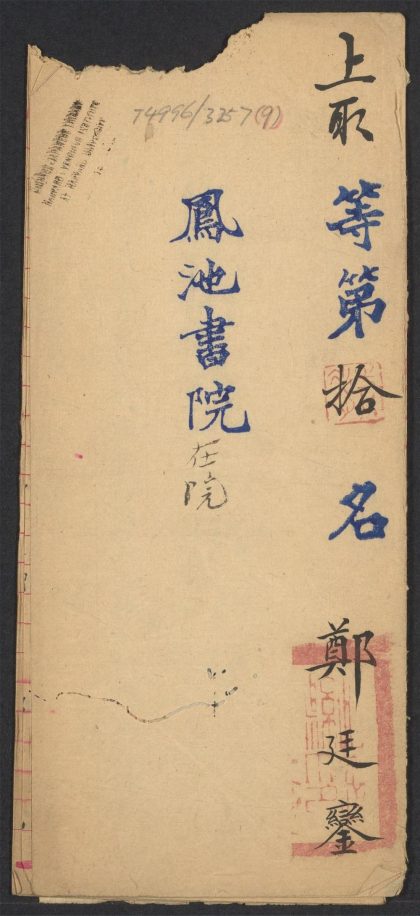 上取等第拾名 鄭廷鑾
鳳池書院在院
T4996/3257(9)